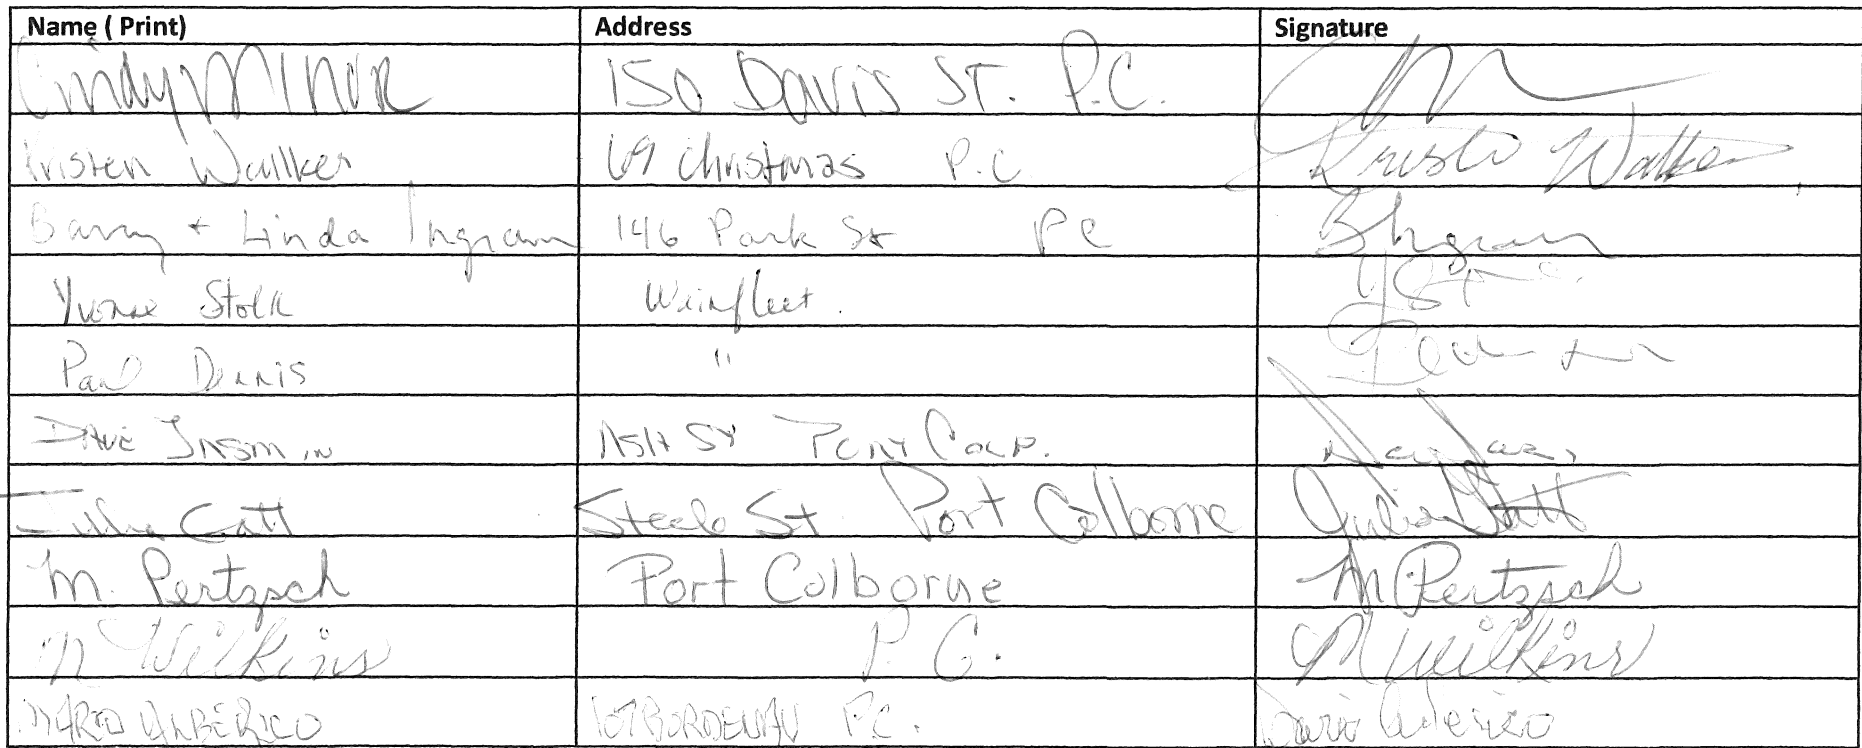 Name ( Print) Address Signature
Cindy Minor 150 Davis St. P.C.
Kristen Wallker 69 Christmas P.C. Walker
Barry + Linda Ingram 146 Park St PC B Ingram
Yvonne Stolk Wainfleet.
Paul Dennis "
Dave Insmin Ash St Port Colb.
Julia Catt Steele St Port Colborne Julia Catt
M. Pertzsch Port Colborne M Pertzsch
M Wilkins P.C. M Wilkins
Alberico P.C.